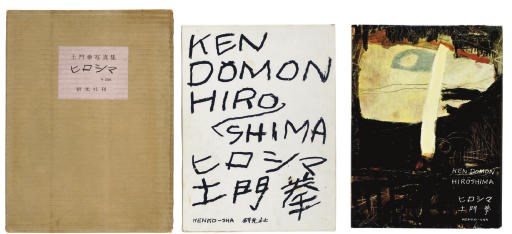 土門拳写真集
ヒロシマ
研光社刊
KEN
DOMON
HIRO
SHIMA
ヒロシマ
土門 拳
KENKO-SHA 研光社
KEN DOMON
HIROSHIMA
ヒロシマ
土門 拳
KENKO-SHA